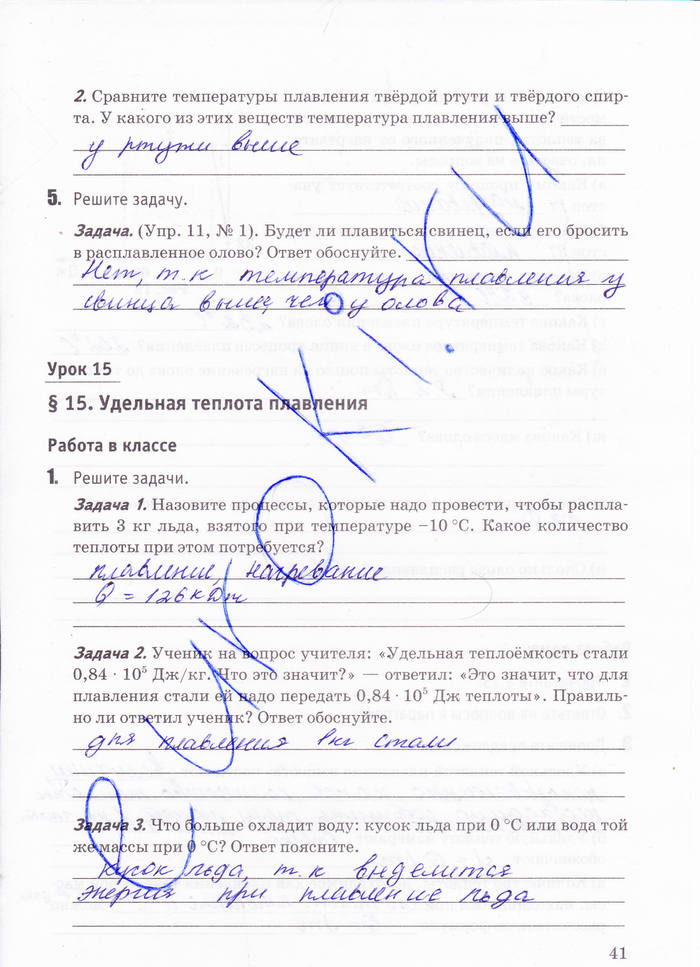 2. Сравните температуры плавления твёрдой ртути и твёрдого спир-
та. У какого из этих веществ температура плавления выше?
у ртути выше
5. Решите задачу.
Задача. (Упр. 11, № 1). Будет ли плавиться свинец, если его бросить
в расплавленное олово? Ответ обоснуйте.
Нет, т.к температура плавления у
свинца выше, чем у олова
Урок 15
§ 15. Удельная теплота плавления
Работа в классе
1. Решите задачи.
Задача 1. Назовите процессы, которые надо провести, чтобы распла-
вить 3 кг льда, взятого при температуре –10 °С. Какое количество
теплоты при этом потребуется?
плавление, нагревание
Q = 126 кДж
Задача 2. Ученик на вопрос учителя: «Удельная теплоёмкость стали
0,84 · 10⁵ Дж/кг. Что это значит?» — ответил: «Это значит, что для
плавления стали ей надо передать 0,84 · 10⁵ Дж теплоты». Правиль-
но ли ответил ученик? Ответ обоснуйте.
для плавления 1кг стали
Задача 3. Что больше охладит воду: кусок льда при 0 °С или вода той
же массы при 0 °С? Ответ поясните.
кусок льда, т.к выделится
энергия при плавление льда
41